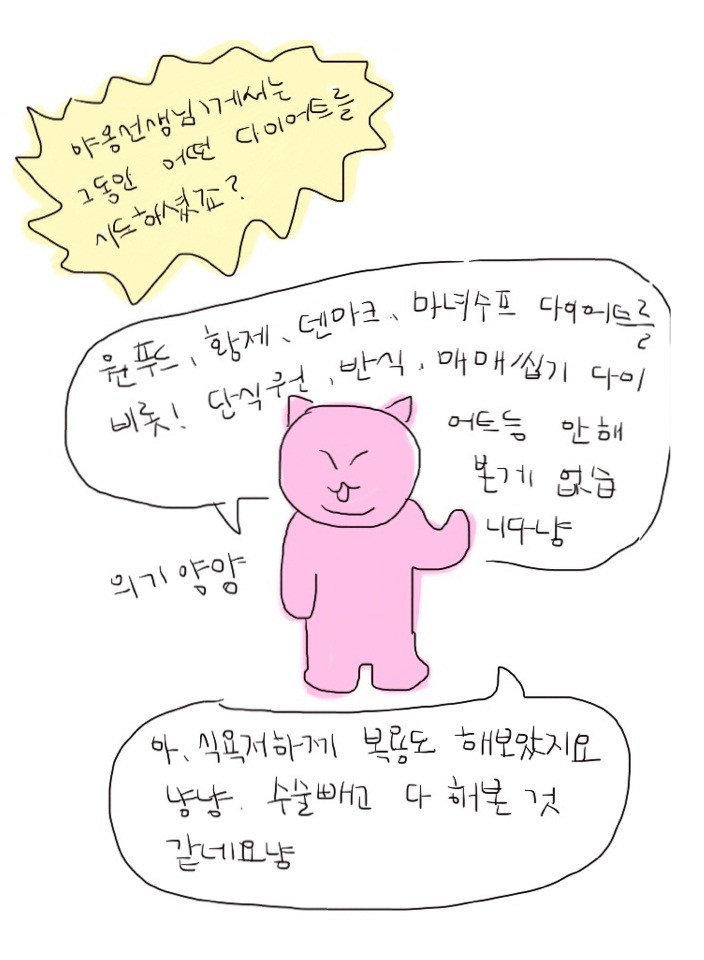 야옹선생님께서는
그동안 어떤 다이어트를
시도하셨죠?
원푸드、황제、덴마크、마녀수프 다이어트를
비롯! 단식원、반식、매매씹기 다이
어트등 안해
본게 없습
니다냥
의기양양
아、식욕저하제 복용도 해보았지요
냥냥. 수술빼고 다 해본 것
같네요냥